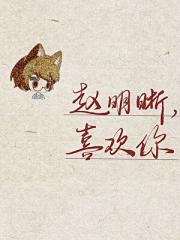 赵明晰，
喜欢你